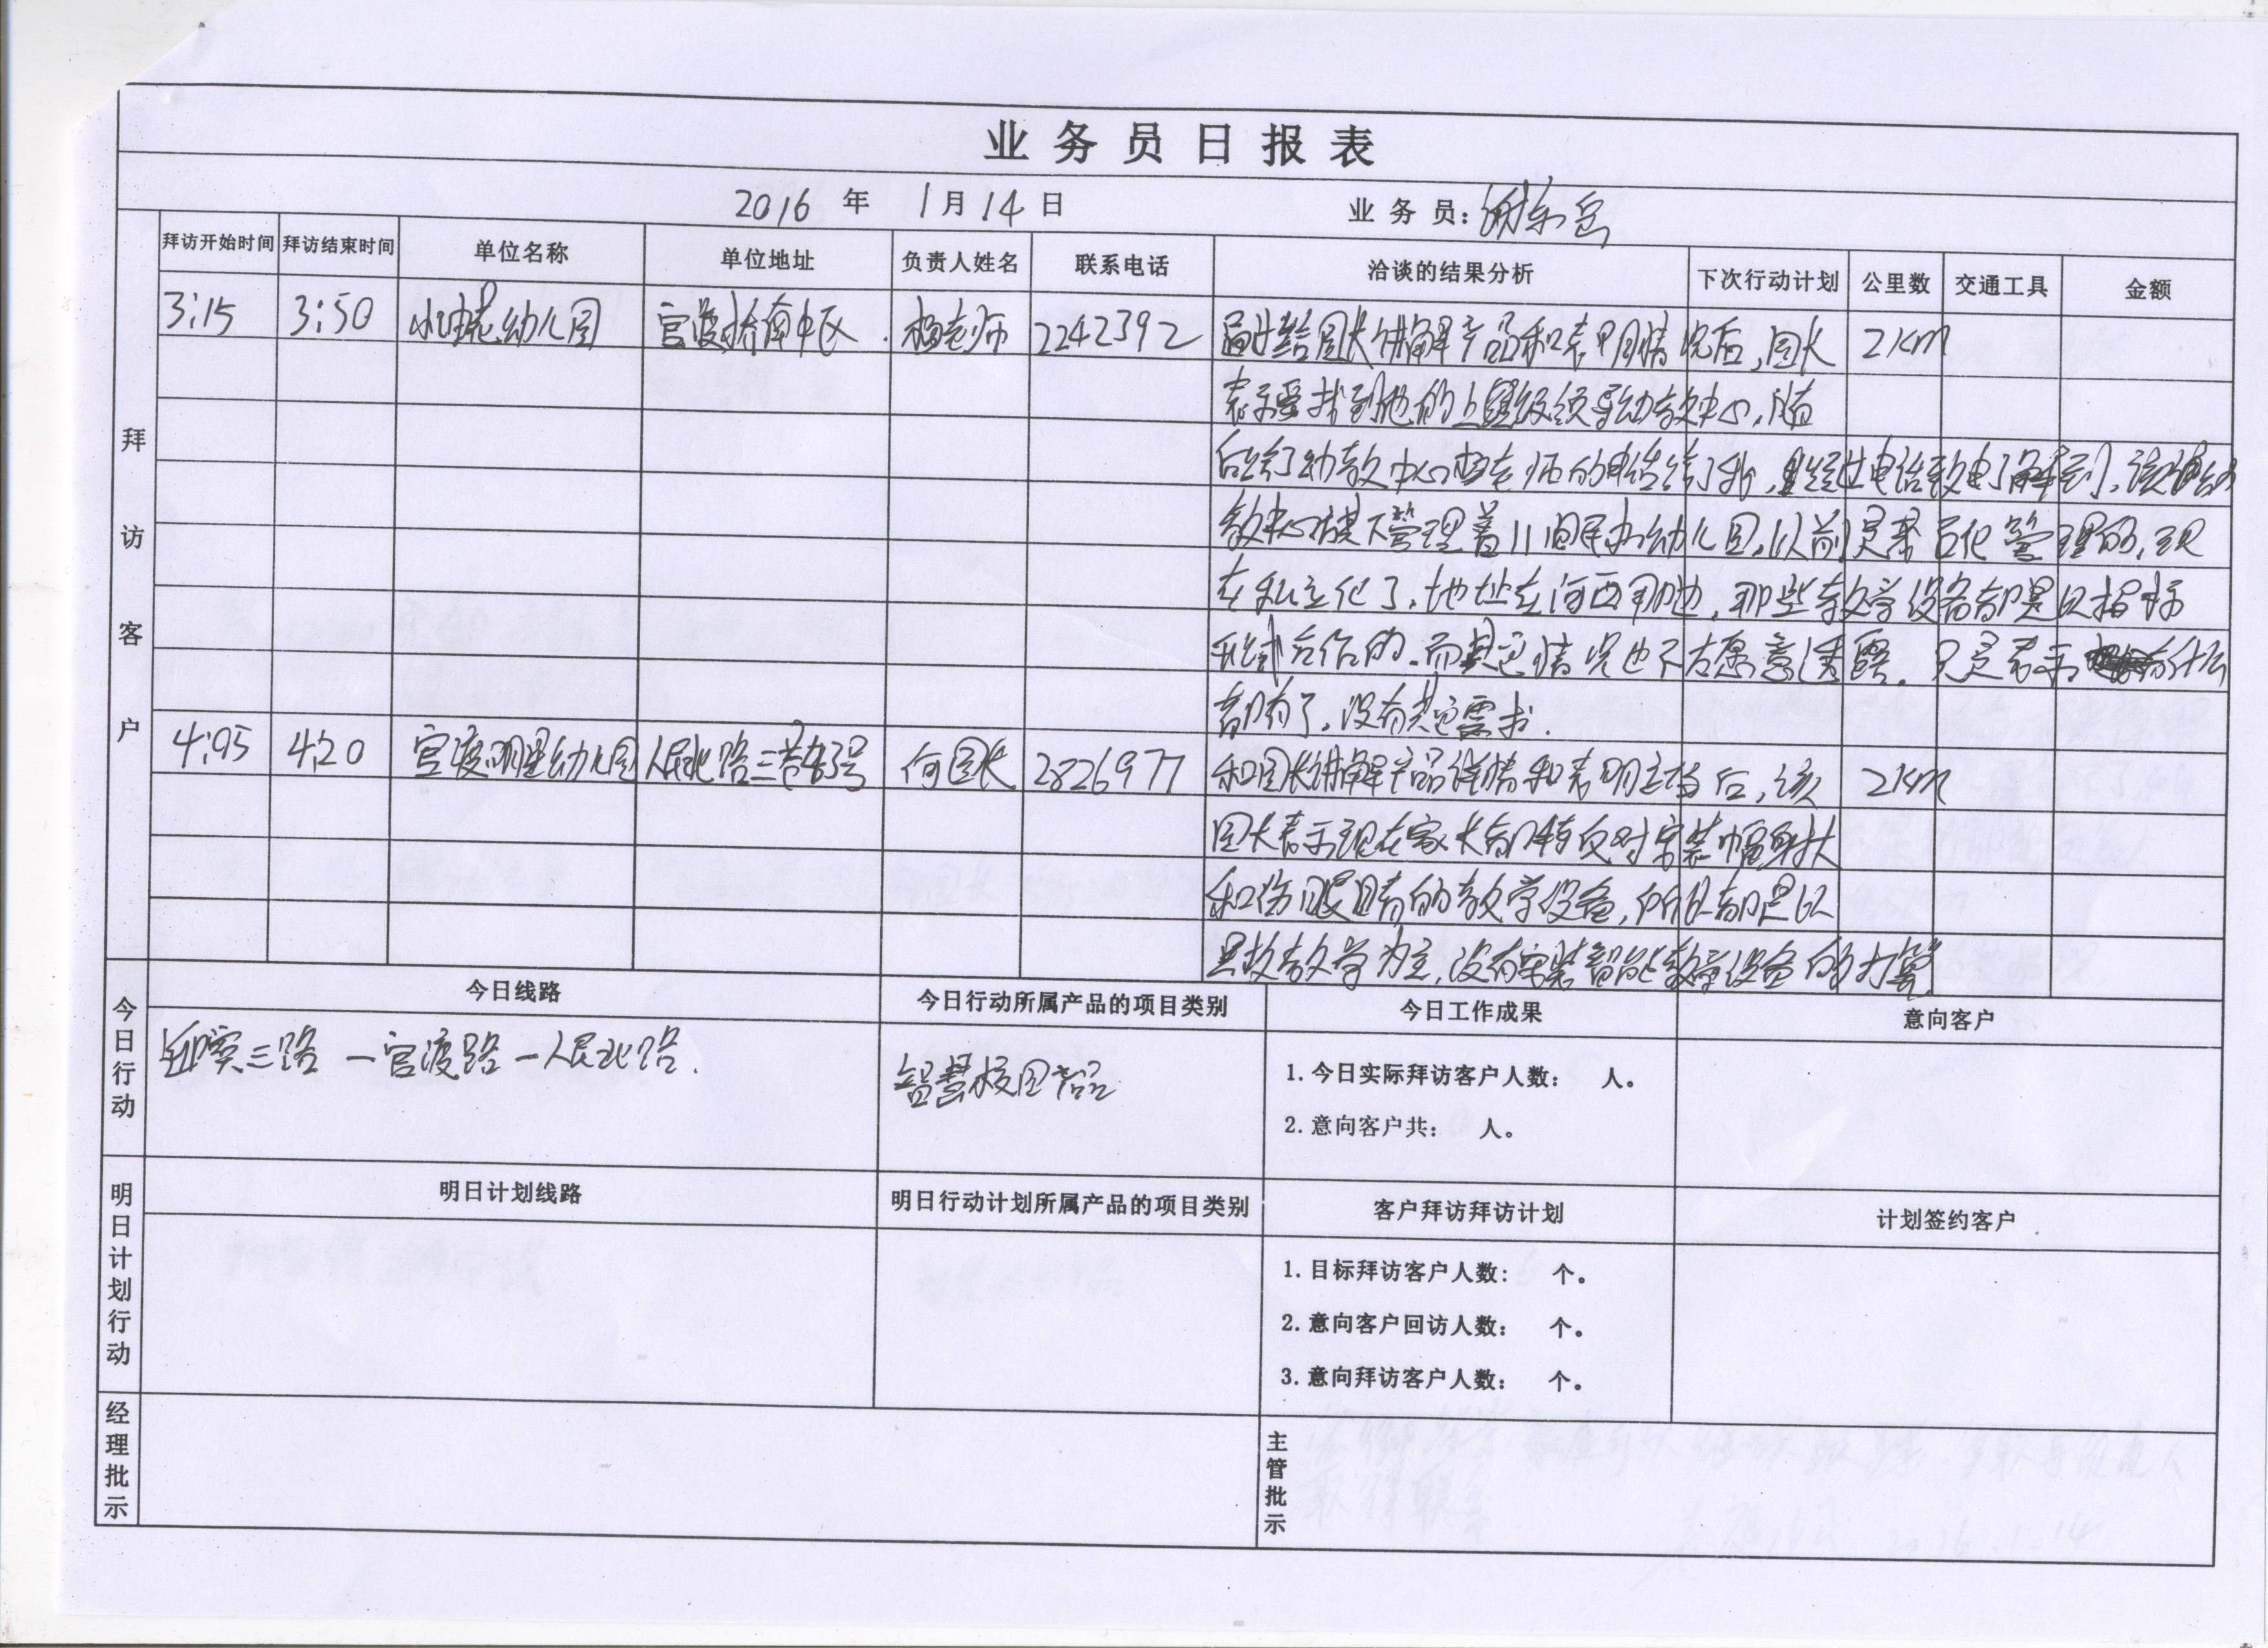 业务员日报表
2016 年 1 月 14 日 业务员:谢东岳
拜访客户
拜访开始时间 拜访结束时间 单位名称 单位地址 负责人姓名 联系电话 洽谈的结果分析 下次行动计划 公里数 交通工具 金额
3:15 3:50 幼儿园 官渡桥南中区 杨老师 2242392 给园长讲解产品和表明情况后,园长 2km
表示要找到他的上级领导幼教中心,随
后给了幼教中心老师的电话给了我,经过电话致电了解到,该幼
教中心其下管理着11间民办幼儿园,以前是管理的,现
在私立化了,地址在河西那边,那些教学设备都是以招标
形式合作的。而其它情况也不太愿意透露。只是表示有什么
都有了,没有其它需求.
4:05 4:20 官渡明星幼儿园 人民北路三巷3号 何园长 2826977 和园长讲解产品详情和表明立场后,该 2km
园长表示现在家长都特反对安装辐射大
和伤眼睛的教学设备,所以都是以
教学为主,没有安装智能教学设备的打算
今日行动
今日线路 今日行动所属产品的项目类别 今日工作成果 意向客户
迎宾三路 一官渡路一人民北路.
智慧校园产品
1.今日实际拜访客户人数: 人。
2.意向客户共: 人。
明日计划行动
明日计划线路 明日行动计划所属产品的项目类别 客户拜访拜访计划 计划签约客户
1.目标拜访客户人数: 个。
2.意向客户回访人数: 个。
3.意向拜访客户人数: 个。
经理批示
主管批示